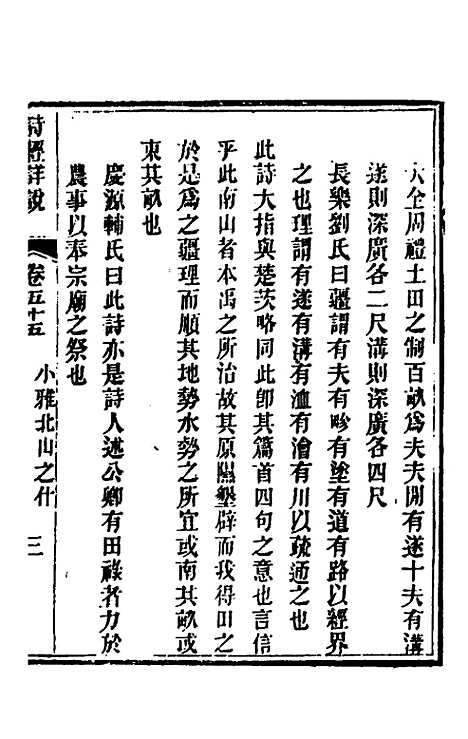 大全周禮土田之制百畝爲夫夫間有遂十夫有溝
遂則深廣各二尺溝則深廣各四尺
長樂劉氏曰疆謂有夫有畛有塗有道有路以經界
之也理謂有遂有溝有洫有澮有川以疏通之也
此詩大指與楚茨略同此卽其篇首四句之意也言信
乎此南山者本禹之所治故其原隰墾辟而我得田之
於是爲之疆理而順其地勢水勢之所宜或南其畝或
東其畝也
慶源輔氏曰此詩亦是詩人述公卿有田祿者力於
農事以奉宗廟之祭也
詩經詳說 卷五十五 小雅北山之什 三